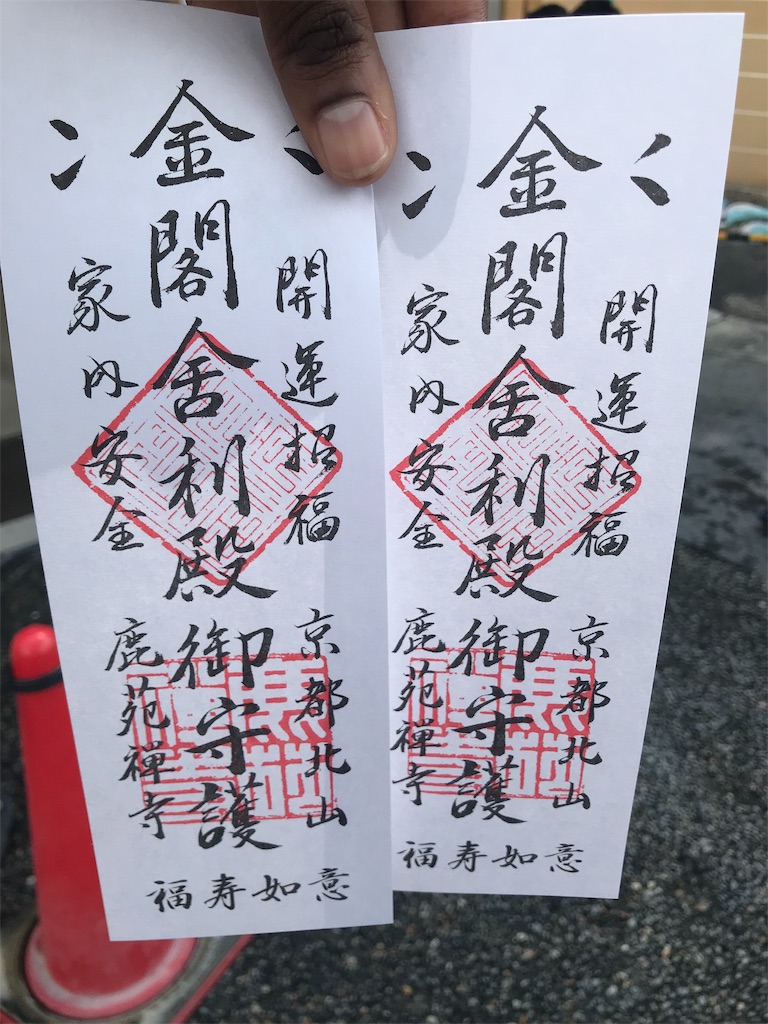 開運招福
金閣舍利殿御守護
家内安全
京都北山
鹿苑禪寺
福寿如意
開運招福
金閣舍利殿御守護
家内安全
京都北山
鹿苑禪寺
福寿如意